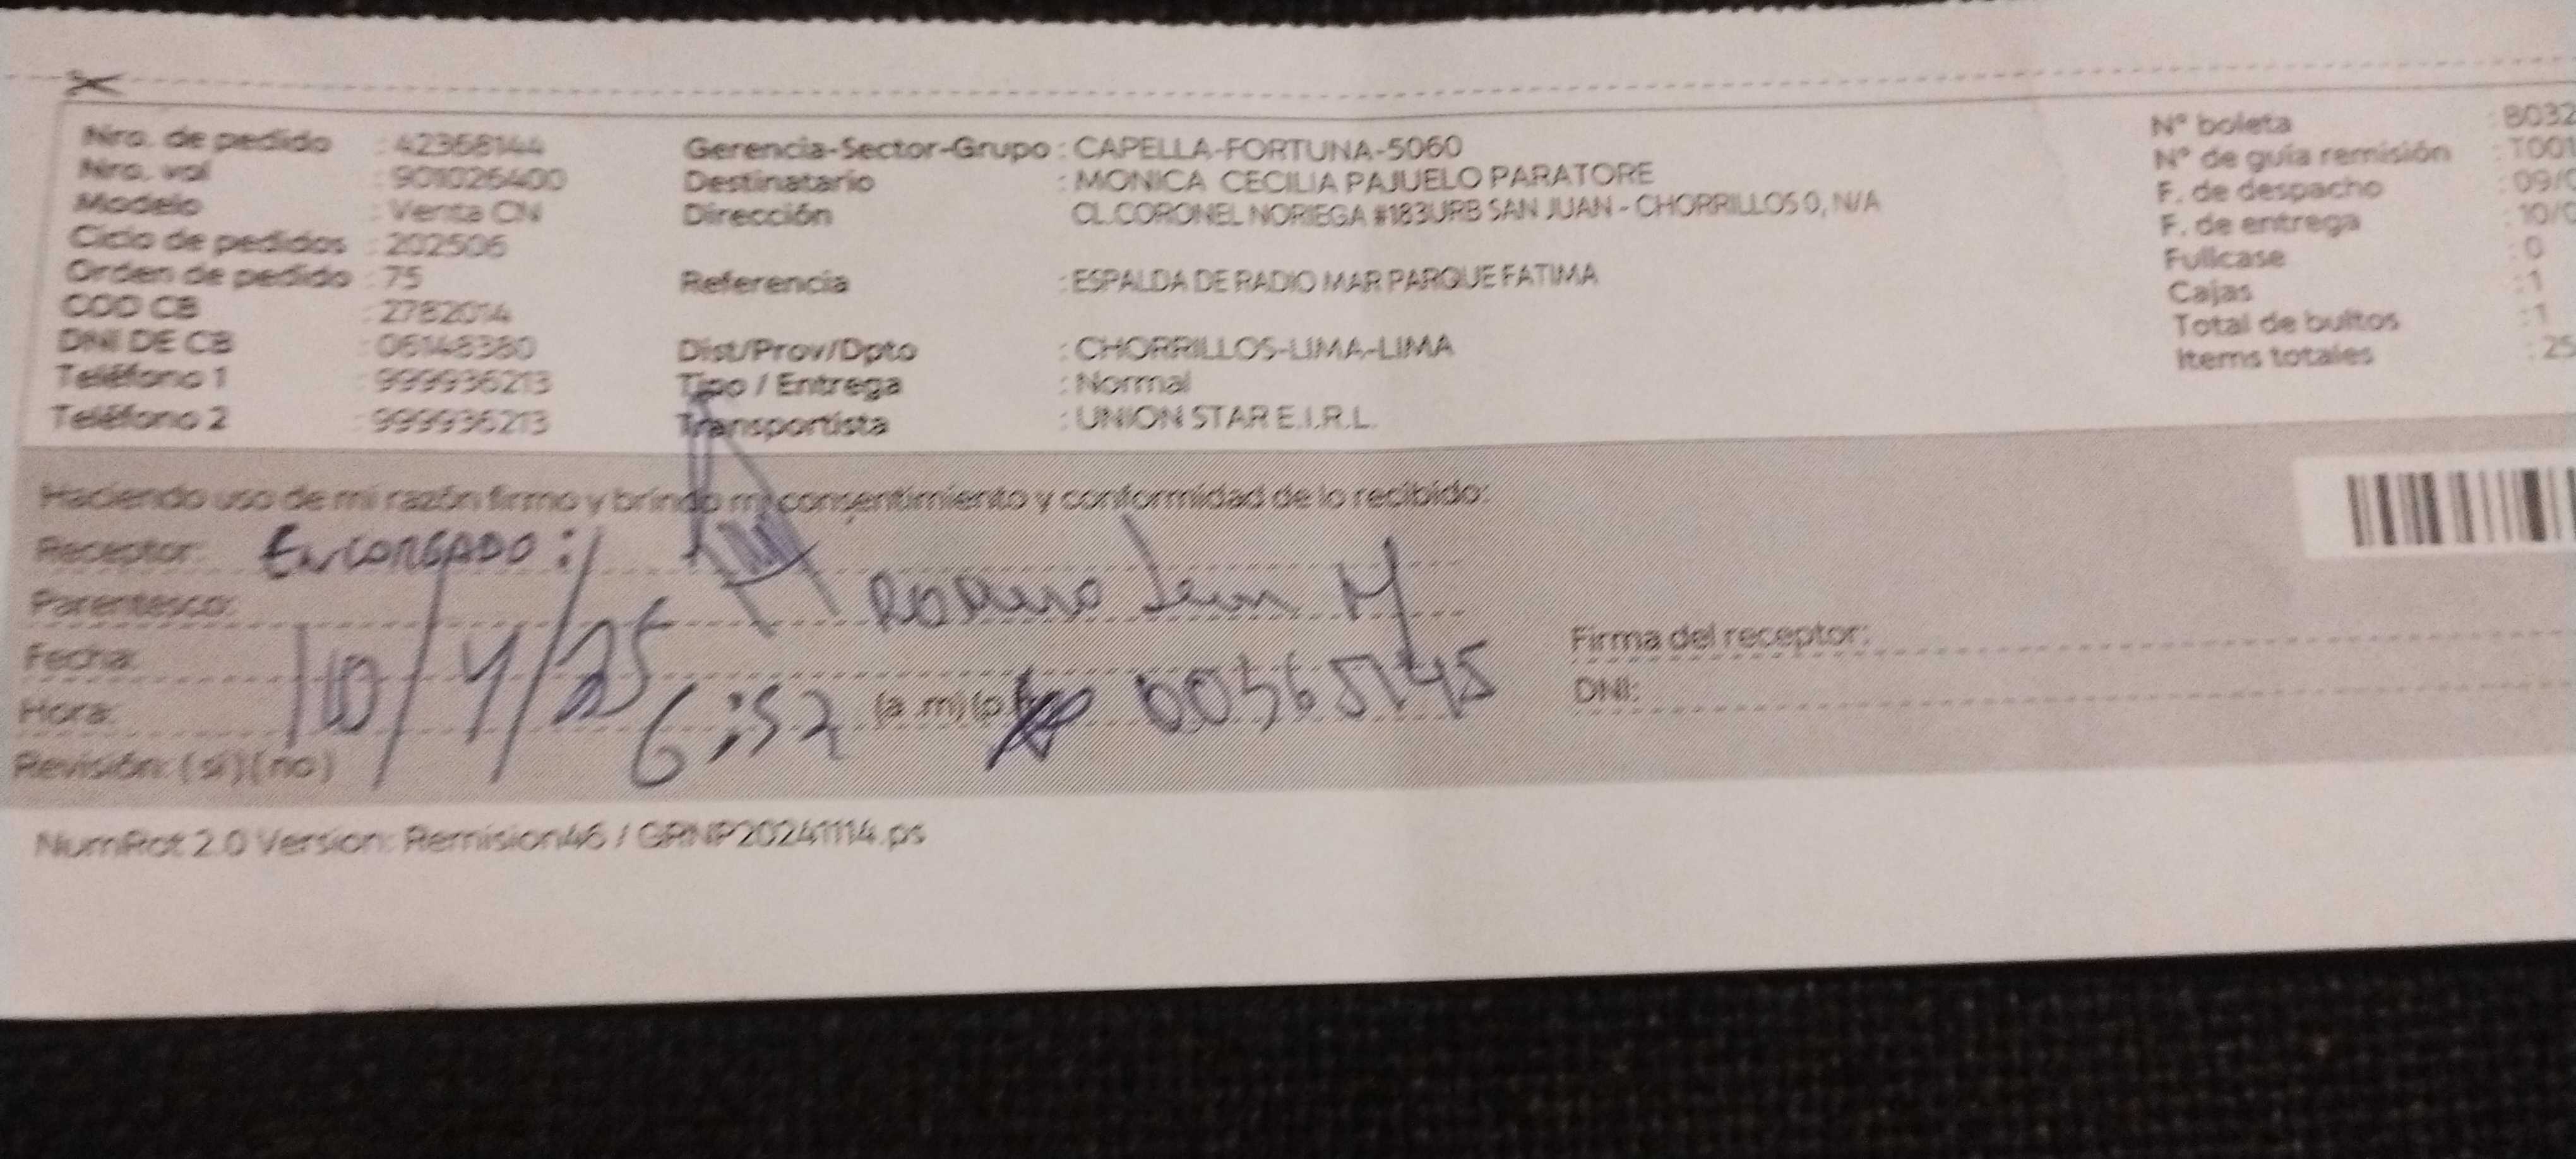 Nro. de pedido : 42368144
Nro. vol : 901026400
Modelo : Venta CN
Ciclo de pedidos : 202506
Orden de pedido : 75
COD CB : 2782014
DNI DE CB : 06148380
Teléfono 1 : 999936213
Teléfono 2 : 999936213
Gerencia-Sector-Grupo : CAPELLA-FORTUNA-5060
Destinatario : MONICA CECILIA PAJUELO PARATORE
Dirección CL.CORONEL NORIEGA #183URB SAN JUAN - CHORRILLOS 0, N/A
Referencia : ESPALDA DE RADIO MAR PARQUE FATIMA
Dist/Prov/Dpto : CHORRILLOS-LIMA-LIMA
Tipo / Entrega : Normal
Transportista : UNION STAR E.I.R.L.
N° boleta : B032
N° de guía remisión : T001
F. de despacho : 09/0
F. de entrega : 10/0
Fullcase : 0
Cajas : 1
Total de bultos : 1
Items totales : 25
Haciendo uso de mi razón firmo y brindo mi consentimiento y conformidad de lo recibido:
Receptor: ENCARGADO :
Parentesco:
Fecha: 10/4/25
Hora: 6:52 (a .m) (p.
Revisión: (si) (no)
Firma del receptor:
DNI:
NumRot 2.0 Version: Remision46 / GRNP20241114.ps